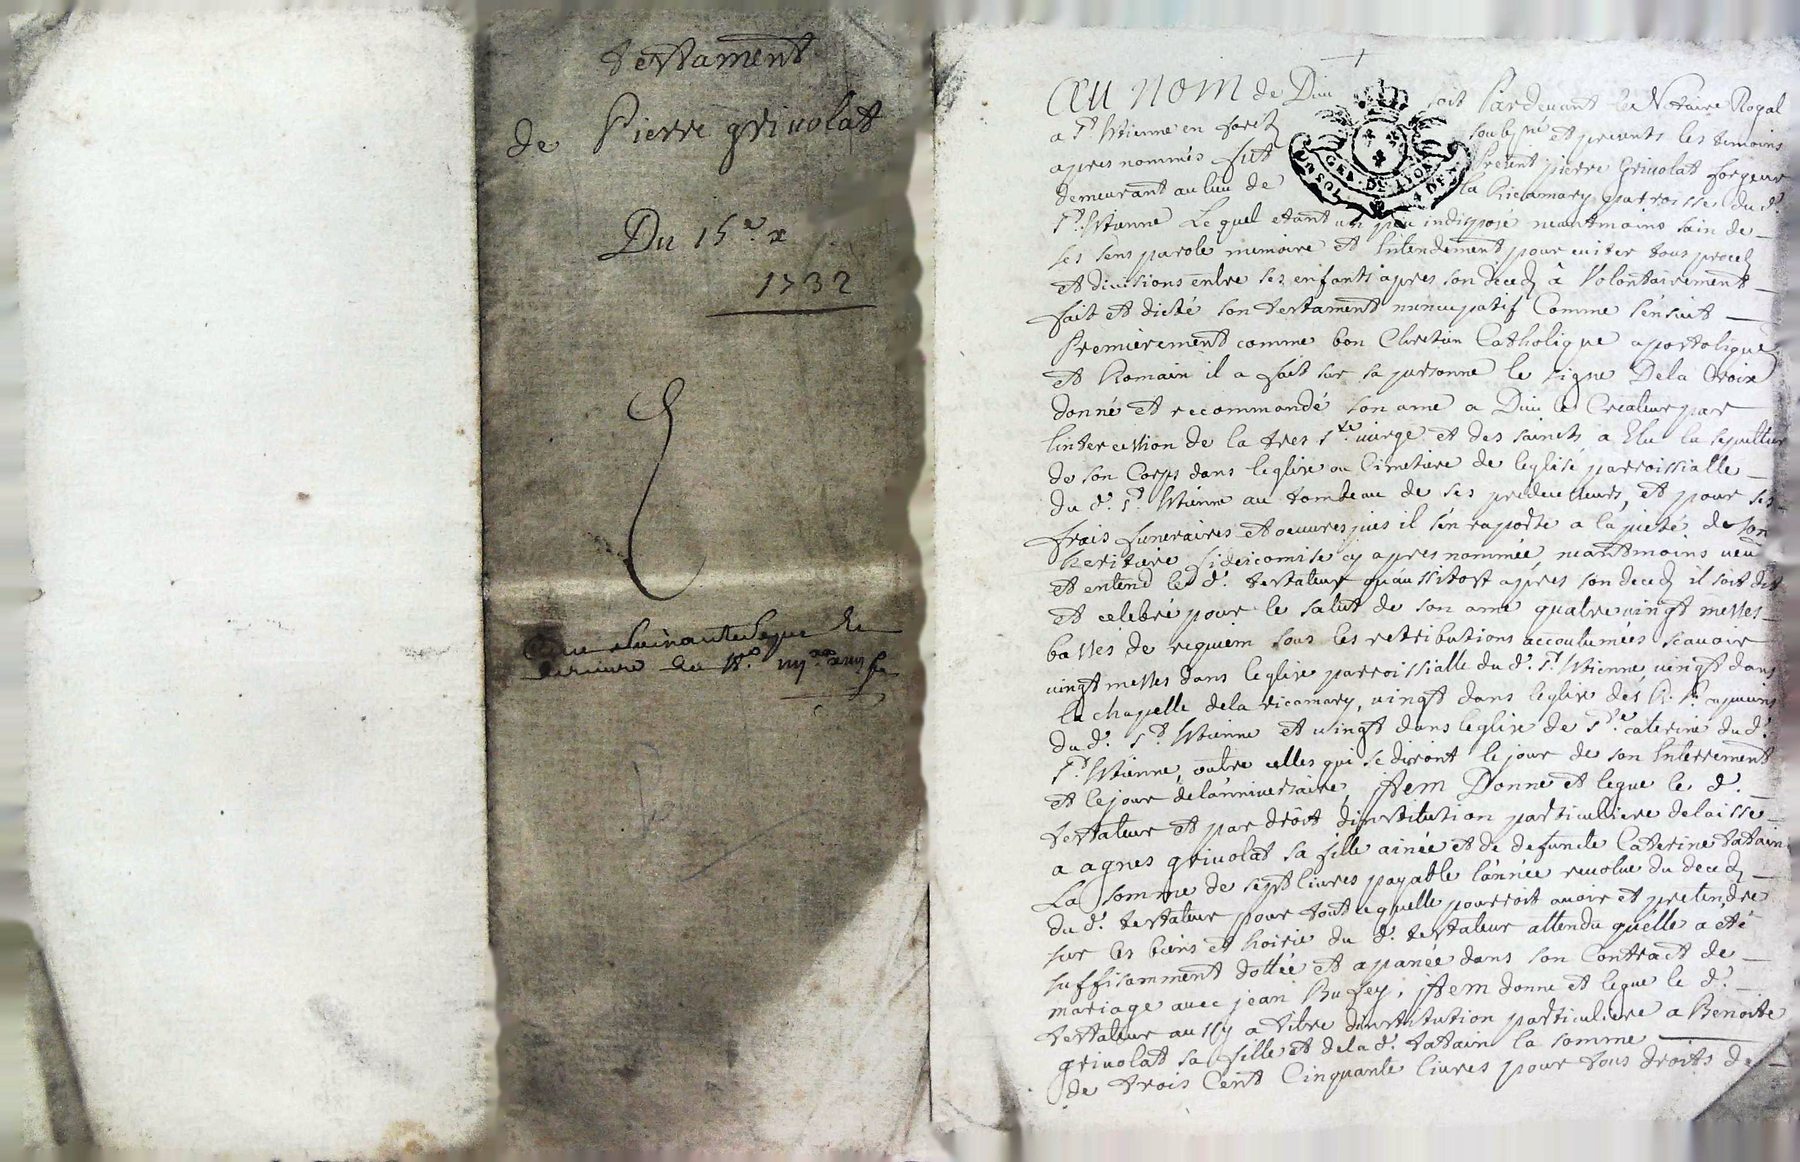 testament
de Pierre grivolat
Du 15e x
1732
GEN. DE LYON
Au nom de Dieu soit Pardevant le Notaire Royal
a St Etienne en forez soussigné et presents les temoins
apres nommés fut Present pierre Grivolat forgeur
demeurant au lieu de la Ricamary parroisse du d.
St Etienne Lequel etant un peu indisposé neantmoins sain de
ses sens parole memoire et Entendement pour eviter tous proces
et divisions entre ses enfants apres son deced à Volontairement
fait et dicté son testament nuncupatif Comme sénsuit
Premierement comme bon Chretien Catholique apostolique
et Romain il a fait sur sa personne le signe Dela Croix
donné et recommandé son ame a Dieu le Createur par
lintercession de la tres Ste vierge et des saincts a Elu la sepulture
de son Corps dans leglise ou Cimetiere de leglise parroissialle
du d. St Etienne au tombeau de ses predecesseurs, et pour ses
frais funeraires et oeuvres pies il sén raporte a la pieté de son
heritiere fideicomise cy apres nommée neantmoins veut
et entend le d. testateur quáussitost apres son deced il soit dit
et celebré pour le salut de son ame quatre vingt messes
basses de requiem sous les retributions accoutumées scavoir
vingt messes dans leglise parroissialle du d. St Etienne vingt dans
la chapelle dela ricamary, vingt dans leglise des R. P. capucins
du d. St Etienne et vingt dans leglise de Ste caterine du d.
St Etienne, outre celles qui se diront le jour de son Enterrement
et le jour de lánniversaire, Item Donne et legue le d.
testateur et par droit dinstitution particulliere delaisse
a agnes grivolat sa fille ainée et de defuncte Caterine tatain
La somme de sept livres payable lánnée revolue du deced
du d. testateur pour tout ce quelle pourroit avoir et pretendre
sur les biens et hoirie du d. testateur attendu quélle a eté
suffisamment dottée et apanée dans son Contract de
mariage avec jean Bufey, Item donne et legue le d.
testateur aussy a titre dinstitution particuliere a Benoite
grivolat sa fille et dela d. tatain la somme
de trois Cent Cinquante livres pour tous droits de